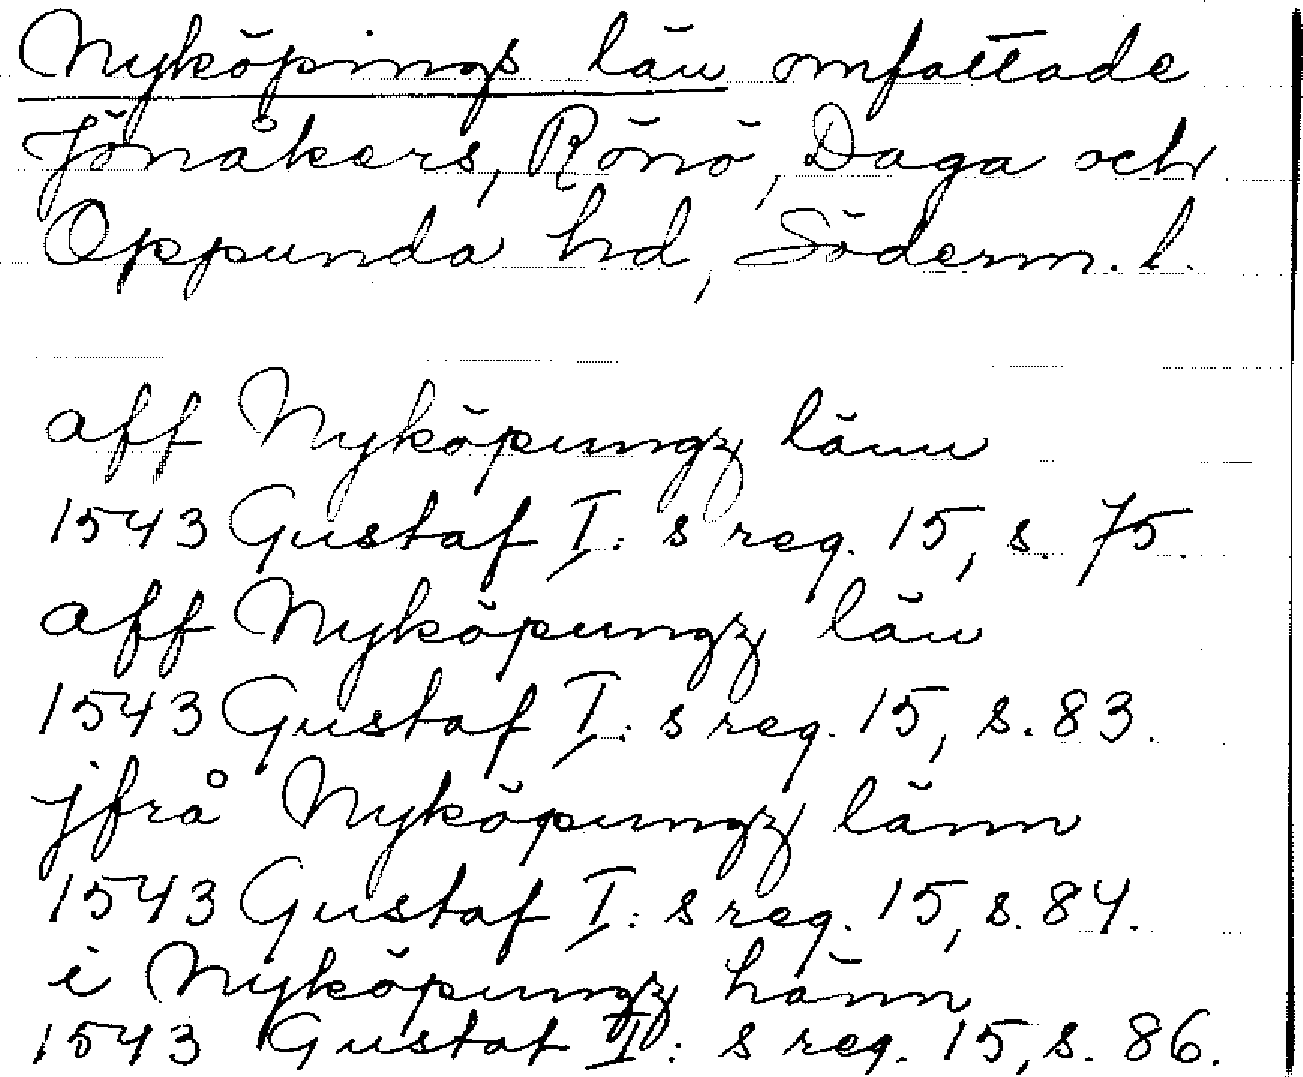 Nyköpings län omfattade
Jönåkers, Rönö, Daga och
Oppunda hd, Söderm. l.
aff Nyköpungz länn
1543 Gustaf I: s reg. 15, s. 75.
aff Nyköpungz län
1543 Gustaf I: s reg. 15, s. 83.
jfrå Nyköpungz länn
1543 Gustaf I: s reg. 15, s. 84.
i Nyköpungz hänn
1543 Gustaf I: s reg. 15, s. 86.